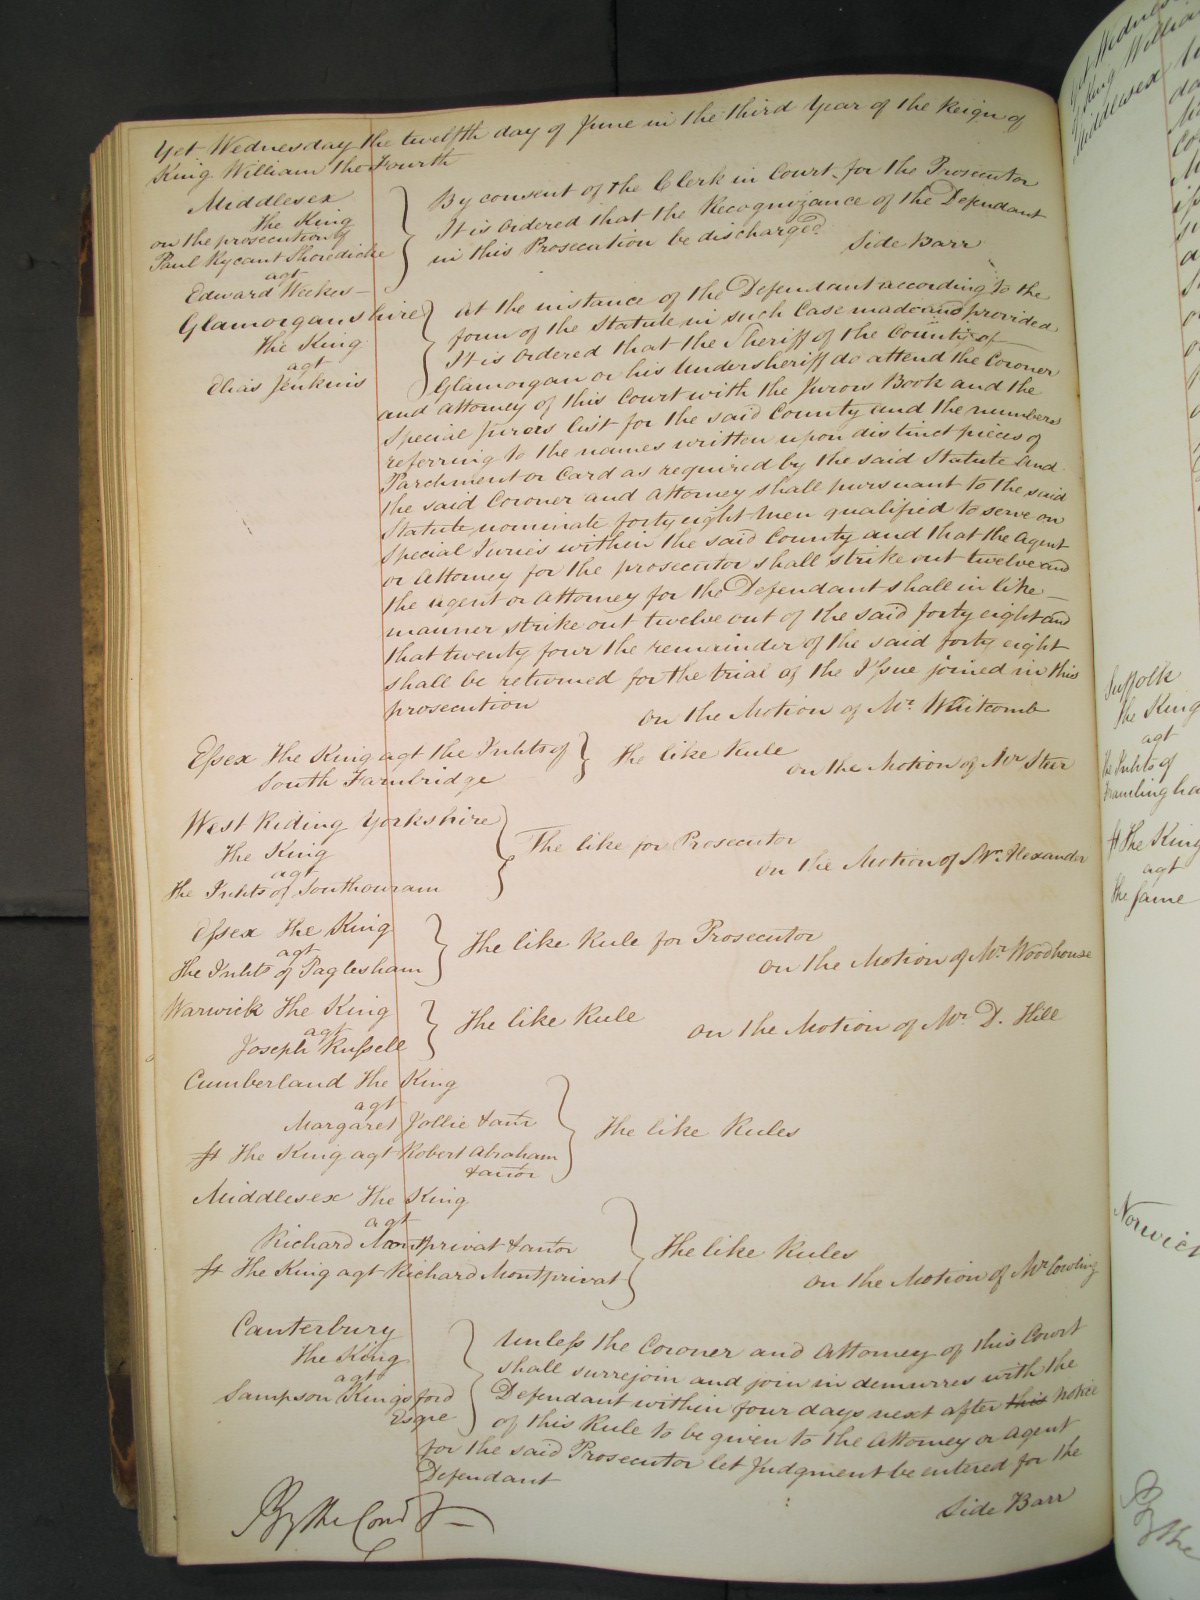 Yet Wednesday the twelfth day of June in the third Year of the Reign of
King William the Fourth
Middlesex
The King
on the prosecution of
Paul Rycaut Shordiche
agt
Edward Weekes
By consent of the Clerk in Court for the Prosecutor
It is ordered that the Recognizance of the Defendant
in this Prosecution be discharged
Side Barr
Glamorganshire
The King
agt
Elias Jenkins
At the instance of the Defendant according to the
form of the Statute in such Case made and provided
It is ordered that the Sheriff of the County of
Glamorgan or his Undersheriff do attend the Coroner
and Attorney of this Court with the Jurors Book and the
Special Jurors List for the said County and the numbers
referring to the names written upon distinct pieces of
Parchment or Card as required by the said Statute And
the said Coroner and Attorney shall pursuant to the said
Statute nominate forty eight Men qualified to serve on
Special Juries within the said County and that the Agent
or Attorney for the prosecutor shall strike out twelve and
the agent or Attorney for the Defendant shall in like
manner strike out twelve out of the said forty eight and
that twenty four the remainder of the said forty eight
shall be returned for the trial of the Issue joined in this
prosecution
On the Motion of Mr. Whitcomb
Essex The King agt the Inhts of
South Fambridge
The like Rule
On the Motion of Mr
West Riding Yorkshire
The King
agt
The Inhts of Southowram
The like for Prosecutor
On the Motion of Mr. Alexander
Essex The King
agt
The Inhts of Paglesham
The like Rule for Prosecutor
On the Motion of Mr. Woodhouse
Warwick The King
agt
Joseph Russell
The like Rule
On the Motion of Mr. D. Hill
Cumberland The King
agt
Margaret Jollie & anr
The King agt Robert Abraham
& anor
The like Rules
Middlesex The King
agt
Richard Montprivat & anor
The King agt Richard Montprivat
The like Rules
On the Motion of Mr. Cowling
Canterbury
The King
agt
Sampson Kingsford
Esqre
Unless the Coroner and Attorney of this Court
shall surrejoin and join in demurres with the
Defendant within four days next after this notice
of this Rule to be given to the Attorney or Agent
for the said Prosecutor let Judgment be entered for the
Defendant
Side Barr
By the Court
Suffolk
The King
agt
The Inhts of
The King
agt
The same
Norwich
By the